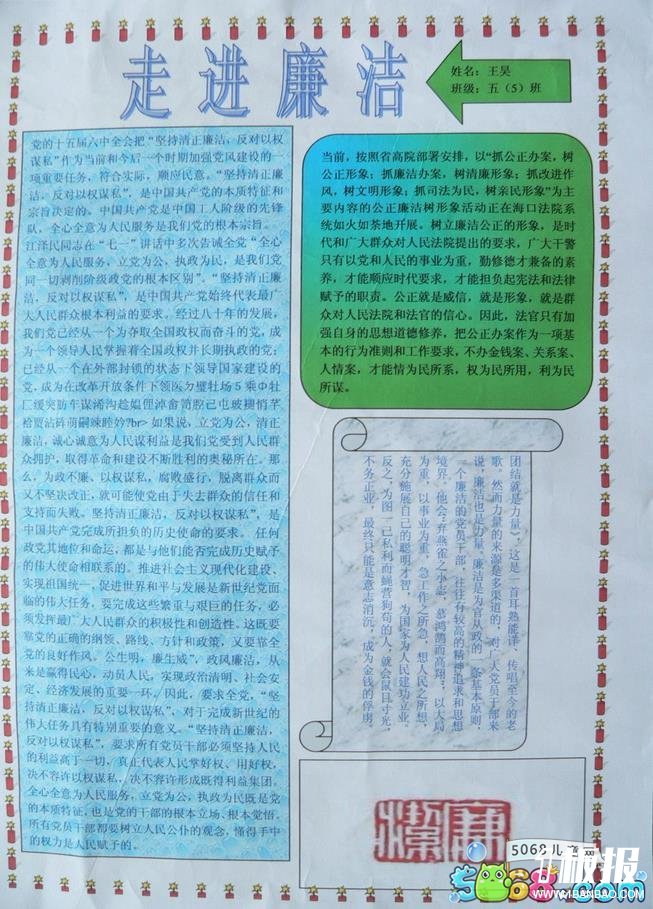 走进廉洁
姓名：王昊
班级：五（5）班
党的十五届六中全会把“坚持清正廉洁，反对以权
谋私”作为当前和今后一个时期加强党风建设的一
项重要任务，符合实际，顺应民意。“坚持清正廉
洁，反对以权谋私”，是中国共产党的本质特征和
宗旨决定的。中国共产党是中国工人阶级的先锋
队，全心全意为人民服务是我们党的根本宗旨。
江泽民同志在“七一”讲话中多次告诫全党“全心
全意为人民服务，立党为公，执政为民，是我们党
同一切剥削阶级政党的根本区别”。“坚持清正廉
洁，反对以权谋私”，是中国共产党始终代表最广
大人民群众根本利益的要求。经过八十年的发展，
我们党已经从一个为夺取全国政权而奋斗的党，成
为一个领导人民掌握着全国政权并长期执政的党；
已经从一个在外部封锁的状态下领导国家建设的
党，成为在改革开放条件下领
如果说，立党为公，清正
廉洁，诚心诚意为人民谋利益是我们党受到人民群
众拥护，取得革命和建设不断胜利的奥秘所在。那
么，为政不廉、以权谋私，腐败盛行，脱离群众而
又不坚决改正，就可能使党由于失去群众的信任和
支持而失败。坚持清正廉洁，反对以权谋私”，是
中国共产党完成所担负的历史使命的要求。任何
政党其地位和命运，都是与他们能否完成历史赋予
的伟大使命相联系的。推进社会主义现代化建设、
实现祖国统一、促进世界和平与发展是新世纪党面
临的伟大任务，要完成这些繁重与艰巨的任务，必
须发挥最广大人民群众的积极性和创造性。这既要
靠党的正确的纲领、路线、方针和政策，又要靠全
党的良好作风。公生明，廉生威”，政风廉洁，从
来是赢得民心，动员人民，实现政治清明、社会安
定、经济发展的重要一环，因此，要求全党，“坚
持清正廉洁，反对以权谋私”，对于完成新世纪的
伟大任务具有特别重要的意义。“坚持清正廉洁，
反对以权谋私”，要求所有党员干部必须坚持人民
的利益高于一切，真正代表人民掌好权、用好权，
决不容许以权谋私，决不容许形成既得利益集团。
全心全意为人民服务，立党为公，执政为民既是党
的本质特征，也是党的干部的根本立场、根本觉悟。
所有党员干部都要树立人民公仆的观念，懂得手中
的权力是人民赋予的。
当前，按照省高院部署安排，以“抓公正办案，树
公正形象；抓廉洁办案，树清廉形象；抓改进作
风，树文明形象；抓司法为民，树亲民形象”为主
要内容的公正廉洁树形象活动正在海口法院系
统如火如荼地开展。树立廉洁公正的形象，是时
代和广大群众对人民法院提出的要求，广大干警
只有以党和人民的事业为重，勤修德才兼备的素
养，才能顺应时代要求，才能担负起宪法和法律
赋予的职责。公正就是威信，就是形象，就是群
众对人民法院和法官的信心。因此，法官只有加
强自身的思想道德修养，把公正办案作为一项基
本的行为准则和工作要求，不办金钱案、关系案、
人情案，才能情为民所系，权为民所用，利为民
所谋。
团结就是力量》，这是一首耳熟能详、传唱至今的老
歌。然而力量的来源是多渠道的，对广大党员干部来
说，廉洁也是力量。廉洁是为官从政的一条基本原则，
一个廉洁的党员干部，往往有较高的精神追求和思想
境界。他会弃燕雀之小志，慕鸿鹄而高翔；以大局
为重，以事业为重，急工作之所急，想人民之所想，
充分施展自己的聪明才智，为国家为人民建功立业。
反之，为图一己私利而蝇营狗苟的人，就会鼠目寸光，
不务正业，最终只能是意志消沉，成为金钱的俘虏。
廉洁
5068儿童网
5068.com
板报
WWW.1BANBAO.COM